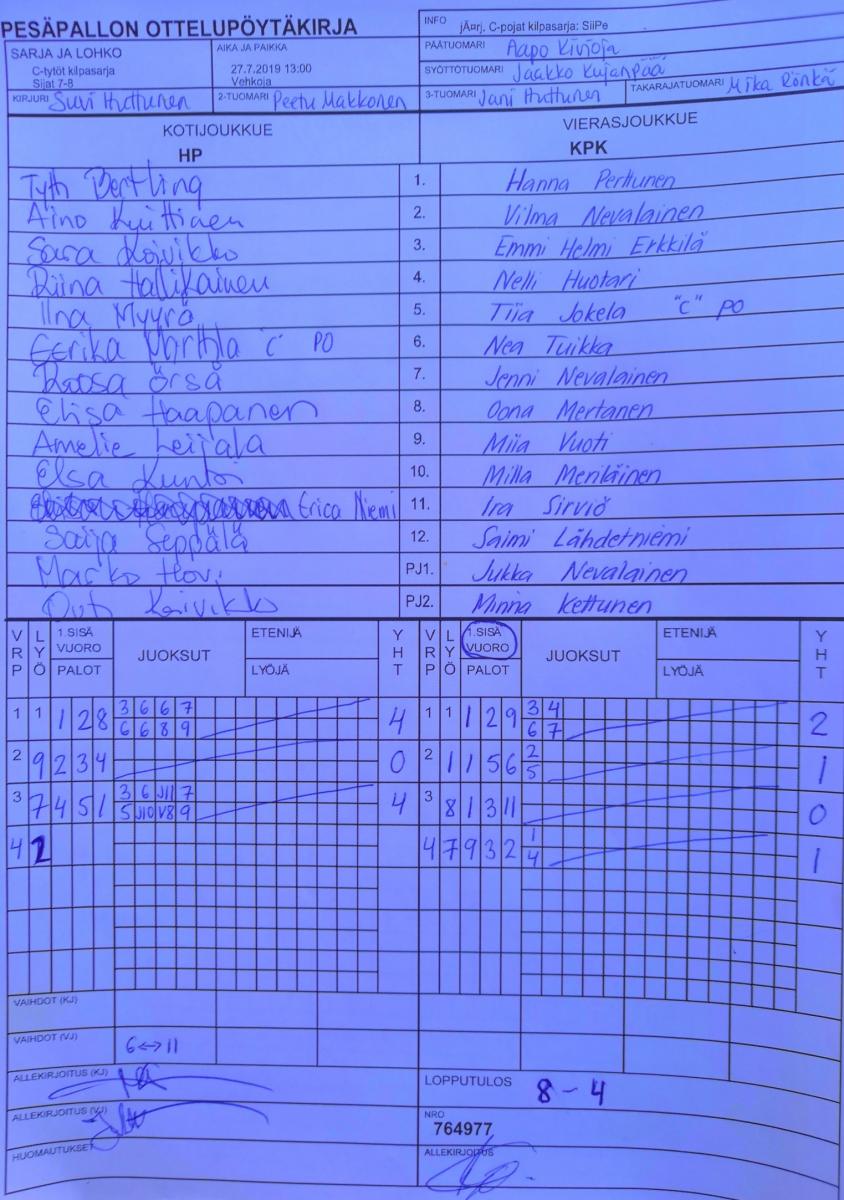 PESÄPALLON OTTELUPÖYTÄKIRJA
INFO jÃ¤rj. C-pojat kilpasarja: SiiPe
SARJA JA LOHKO
C-tytöt kilpasarja
Sijat 7-8
AIKA JA PAIKKA
27.7.2019 13:00
Vehkoja
PÄÄTUOMARI Aapo Kivioja
SYÖTTÖTUOMARI Jaakko Kujanpää
KIRJURI Suvi Huttunen
2-TUOMARI Peetu Makkonen
3-TUOMARI Jani Huttunen
TAKARAJATUOMARI Mika Rönkä
KOTIJOUKKUE VIERASJOUKKUE
HP KPK
Bertling 1. Hanna Perttunen
Aino Kyüttinen 2. Vilma Nevalainen
Sara Koivikko 3. Emmi Helmi Erkkilä
Riina Hallikainen 4. Nelli Huotari
Iina Myyrä 5. Tiia Jokela "C" PO
Eerika C PO 6. Nea Tuikka
Roosa Örså 7. Jenni Nevalainen
Elisa Haapanen 8. Oona Mertanen
Amelie Leijala 9. Miia Vuoti
Elsa Kuntsi 10. Milla Meriläinen
Erica Niemi 11. Ira Sirviö
Saija Seppälä 12. Saimi Lähdetniemi
Marko Hovi PJ1. Jukka Nevalainen
Outi Koivikko PJ2. Minna Kettunen
VRP LYÖ 1.SISÄ VUORO PALOT JUOKSUT ETENIJÄ LYÖJÄ YHT VRP LYÖ 1.SISÄ VUORO PALOT JUOKSUT ETENIJÄ LYÖJÄ YHT
1 1 1 2 8 3 6 6 7 4 1 1 1 2 9 3 4 2
6 6 8 9 6 7
2 9 2 3 4 0 2 1 1 5 6 2 1
5
3 7 4 5 1 3 6 J11 7 4 3 8 1 3 11 0
5 J10 V8 9
4 2 4 7 9 3 2 1 1
4
VAIHDOT (KJ)
VAIHDOT (VJ) 6↔11
ALLEKIRJOITUS (KJ)
LOPPUTULOS 8 - 4
ALLEKIRJOITUS (VJ)
NRO
764977
HUOMAUTUKSET
ALLEKIRJOITUS